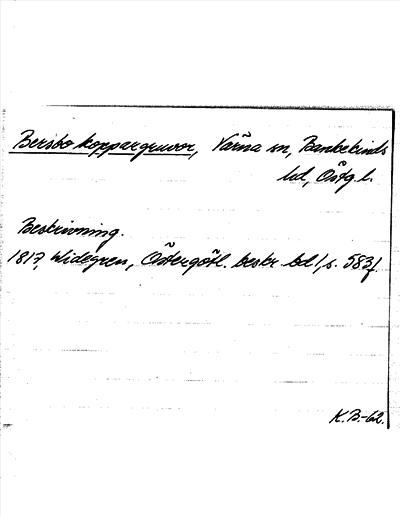 Bersbo koppargruvor, Värna sn, Bankekinds
hd, Östg.l.
Beskrivning.
1817, Widegren, Östergötl. beskr. bd 1, s. 583f
K.B.-62.